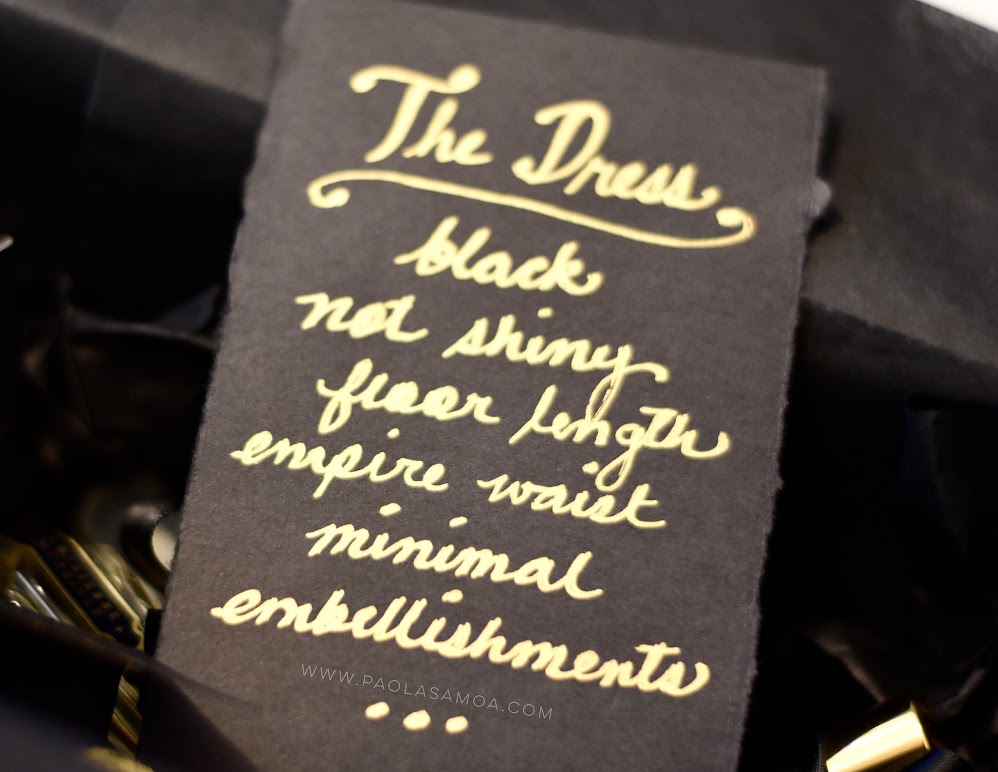 The Dress
black
not shiny
floor length
empire waist
minimal
embellishments
WWW.PAOLASAMOA.COM
...